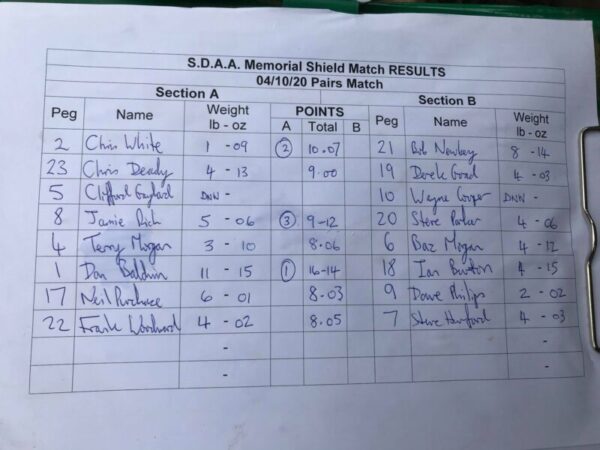 S.D.A.A. Memorial Shield Match RESULTS
04/10/20 Pairs Match
Section A Section B
Peg Name Weight lb - oz POINTS A Total B Peg Name Weight lb - oz
2 Chris White 1 - 09 2 10.07 21 Bob Newbey 8 - 14
23 Chris Deady 4 - 13 9.00 19 Derek Goad 4 - 03
5 Clifford DNW - 10 Wayne Cooper DNW -
8 Jamie Rich 5 - 06 3 9-12 20 Steve Parker 4 - 06
4 Terry Mogan 3 - 10 8.06 6 Baz Mogan 4 - 12
1 Dan Baldwin 11 - 15 1 16-14 18 Ian Burton 4 - 15
17 Neil 6 - 01 8.03 9 Dave Philips 2 - 02
22 Frank Woodward 4 - 02 8.05 7 Steve 4 - 03
- -
- -